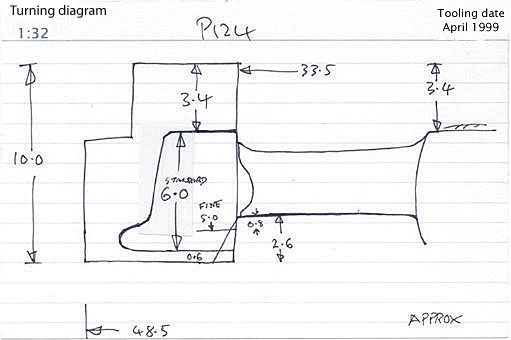 Turning diagram
Tooling date
1:32
April 1999
P124
33.5
3.4
3.4
10.0
STANDARD
6.0
FINE
5.0
0.8
2.6
0.6
48.5
APPROX